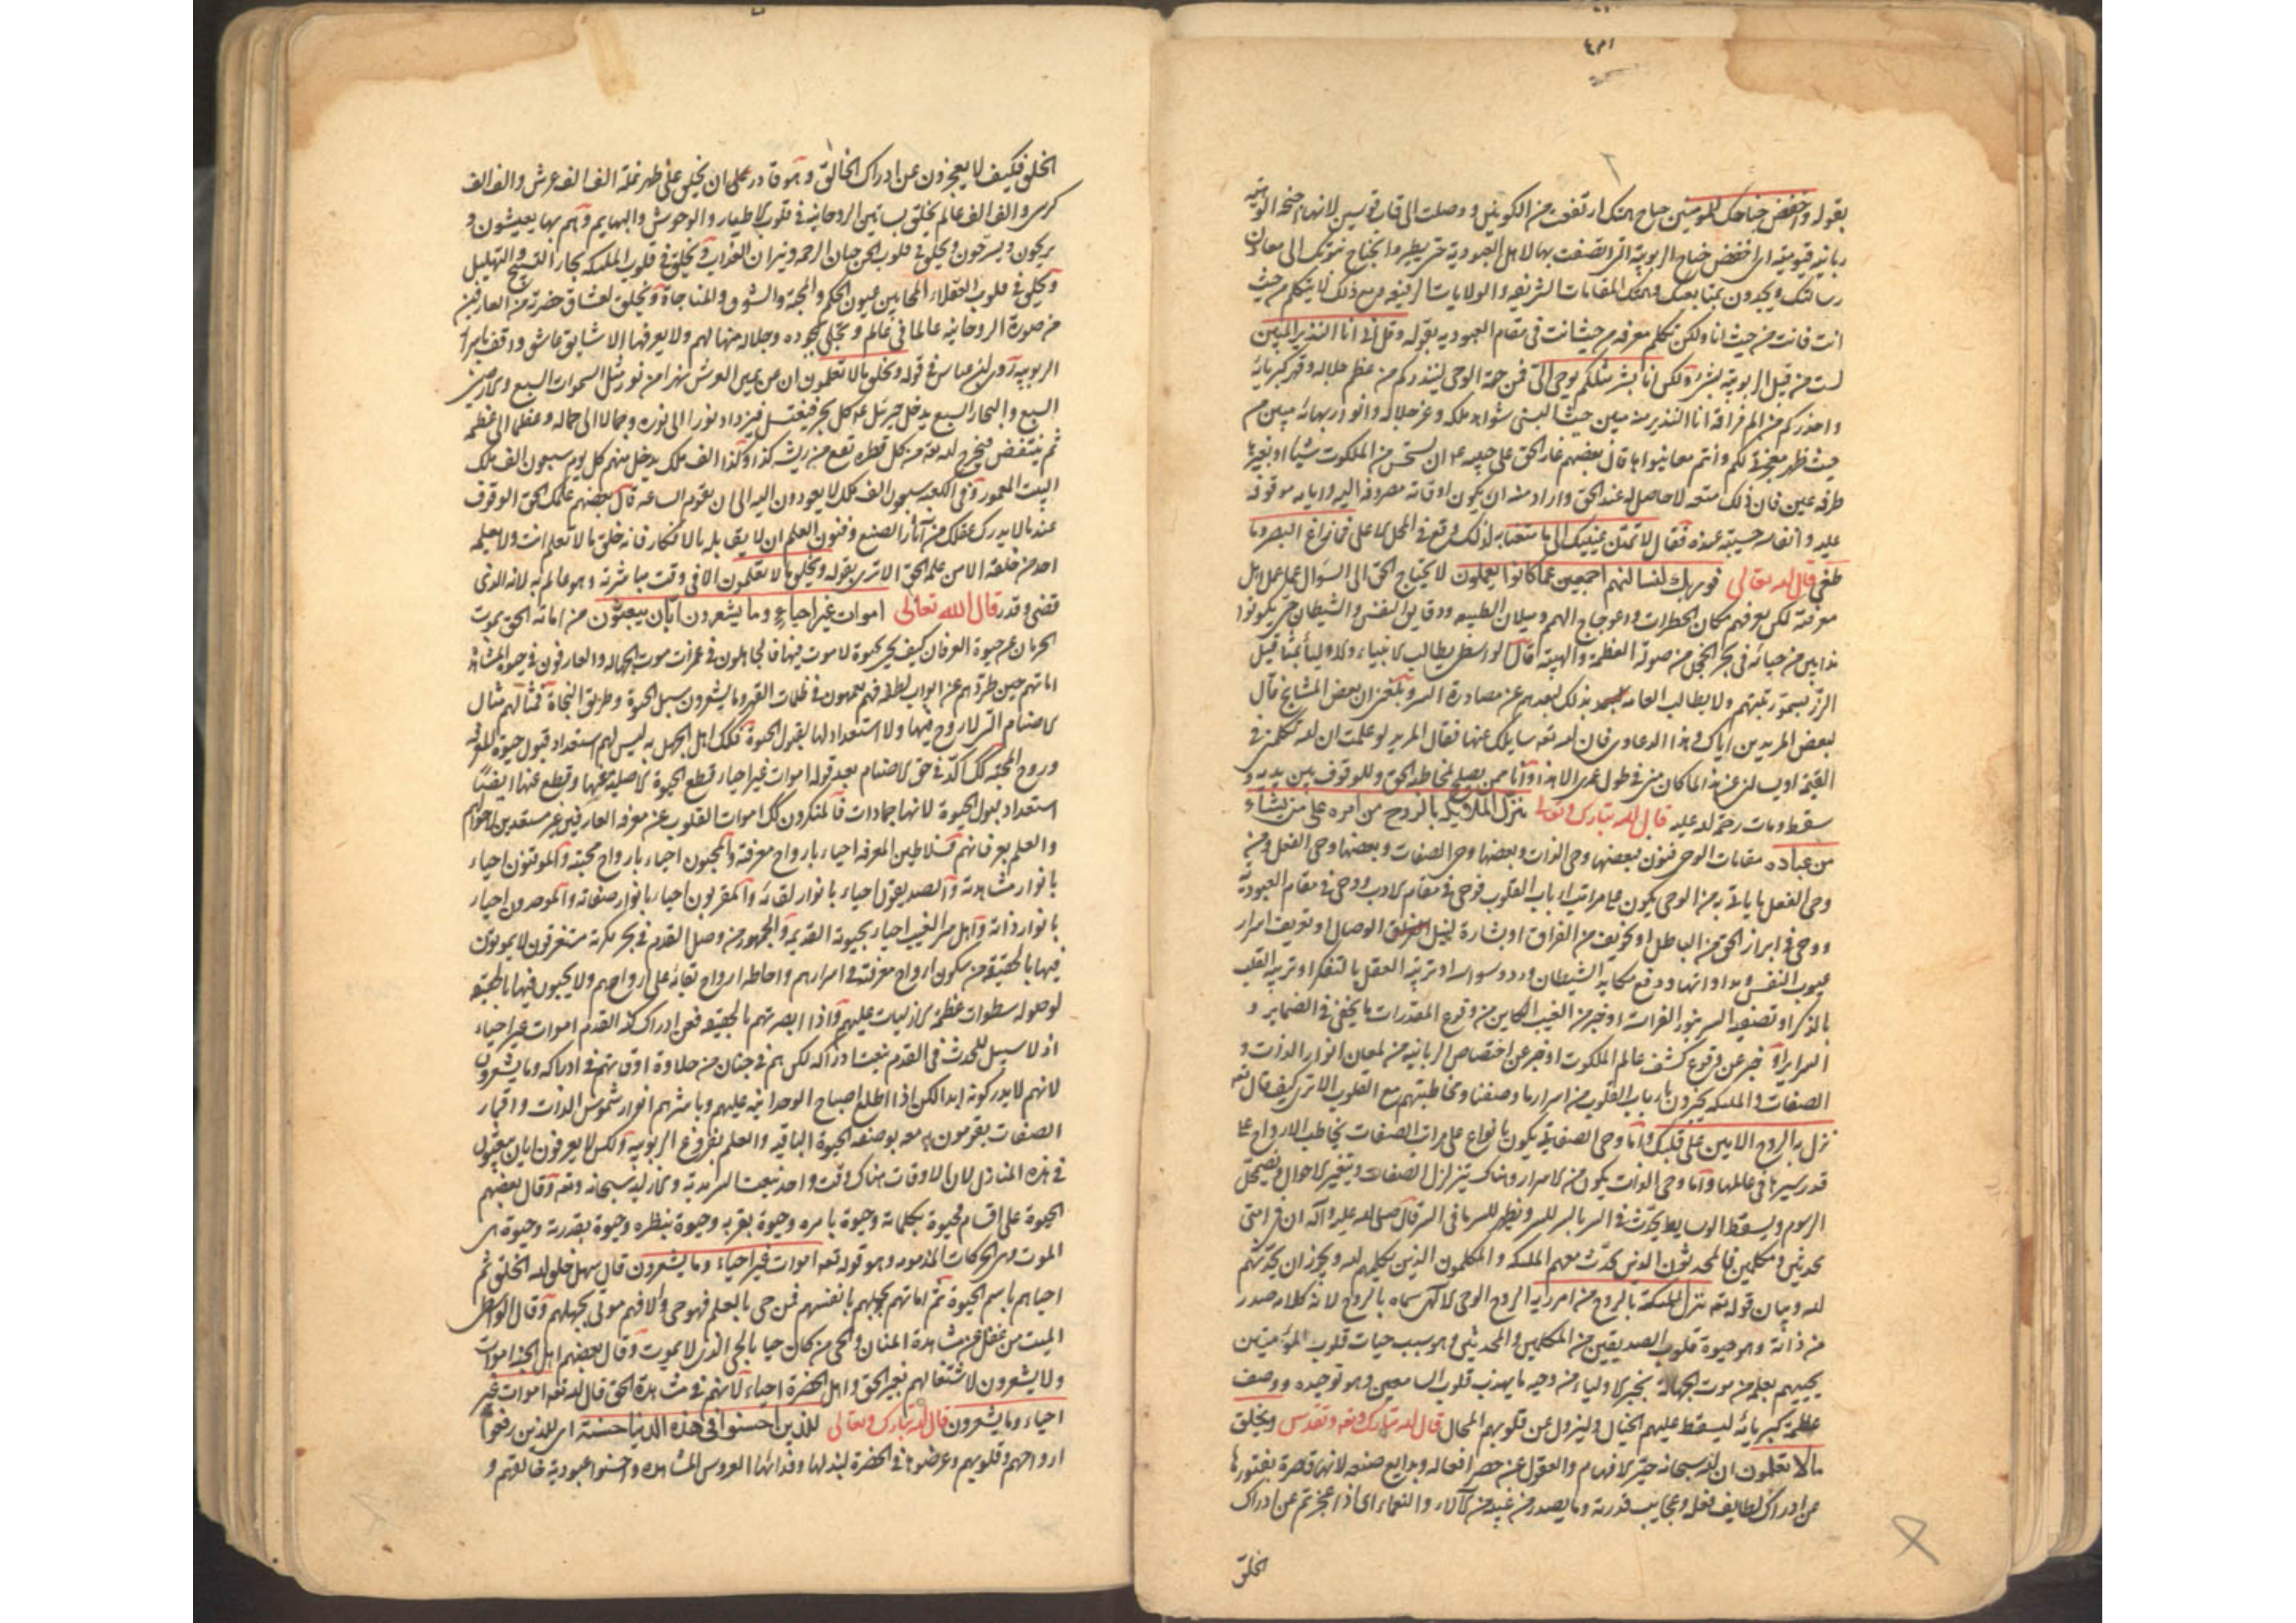 بقوله واخفض جناحك للمؤمنين جناح همتك ارتفعت من الكونين ووصلت الى قاب قوسين لانها اجنحة الوهية
ربانية قيومية اى اخفض جناح الربوبية التى اتصفت بها لاهل العبودية حتى يطيروا بجناح نبوتك الى معادن
رسالتك ويجدون بمتابعتك وهمتك المقامات الشريفة والولايات الرفيعة ومع ذلك لا يتكلم من حيث
انت فانت من حيث انا ولكن تكلم معرفة من حيث انت فى مقام العبودية بقوله وقل انى انا النذير المبين
لست من قبل الربوبية بشئ ولكن انا بشر مثلكم يوحى الىّ فمن جهة الوحى لينذركم من عظم جلاله وقهر كبريائه
واحذركم من الم فراقه انا النذير منه مبين حيث البسنى شواهد ملكه وعز جلاله وانوار بهائه مبين من
حيث ظهر معجزتى لكم وانتم معاينوها قال بعضهم غار الحق على حبيبه ان يستحسن من الملكوت شيئا او بغيرها
طرفة عين فان ذلك متعة لا حاصل له عند الحق واراد منه ان يكون اوقاته مصروفة اليه وايامه موقوفة
عليه وانفاسه حبيسة عنده فقال لا تمدن عينيك الى ما متعنا به لذلك وقع فى المحل الاعلى فما زاغ البصر وما
طغى قال الله تعالى فوربك لنسألنهم اجمعين عما كانوا يعملون لا يحتاج الحق الى السوال عمل عمل اهل
معرفته لكن يعرفهم مكان الخطرات واعوجاج الهمم وميلان الطبيعة ودقايق النفس والشيطان حتى يكونوا
ذايبين من حيائه فى بحر الخجل من صولة العظمة والهيبة قال الواسطى يطالب الانبياء والاولياء بمثاقيل
الذر لسمو رتبتهم ولا يطالب العامة بذلك لبعدهم عن مصادرة السر وبلغنى ان بعض المشايخ قال
لبعض المريدين اياك وهذا الدعاوى فان الله تعه سايلك عنها فقال المريد لو علمت ان الله تكلمنى فى
القيمة او يسالنى عن هذا لما كان منى فى طول عمرى الا هذا وانا ممن يصلح لمخاطبة الحق وللوقوف بين يديه و
سقط ومات رحمة الله عليه قال الله تبارك وتعالى ينزل الملائكة بالروح من امره على من يشاء
من عباده مقامات الوحى فنون فبعضها وحى الذات وبعضها وحى الصفات وبعضها وحى الفعل ومن
وحى الفعل ما ياتى به من الوحى يكون على مراتب ارباب القلوب فوحى فى مقام الادب ووحى فى مقام العبودية
ووحى فى ابراز الحق من الباطل او تخويف من الفراق او بشارة لنيل الوصال او تعريف اسرار
عيوب النفس ومداواتها ودفع مكايد الشيطان ورد وسواسه او تربية العقل بالتفكر او تربية القلب
بالذكر او تصفية السر بنور الفراسة او خبر من الغيب الكاين من وقوع المقدرات ما يخفى فى الضماير و
السراير او خبر عن وقوع كشف عالم الملكوت او خبر عن اختصاص الربانية من لمعان انوار الذات و
الصفات والملئكة يخبرون ارباب القلوب من اسرارها وصفتها ومخاطبتهم مع القلوب الا ترى كيف قال تعه
نزل به الروح الامين على قلبك واما وحى الصفات يكون بانواع على مراتب الصفات يخاطب الارواح على
قدر سيرها فى عالمها واما وحى الذات يكون من الاسرار وهناك يتزلزل الصفات ويتغير الاحوال ويضمحل
الرسوم ويسقط الوسايط يحدث فى السر بالسر للسر ويظهر للسر ما فى السر قال صلى الله عليه وآله ان فى امتى
محدثين ومكلمين فالمحدثون الذين يحدث معهم الملئكة والمكلمون الذين يكلمهم الله ويجوز ان يحدثهم
الله وبيان قوله تعه ينزل الملئكة بالروح من امره اى الروح الوحى الالهى سماه بالروح لانه كلامه صدر
من ذاته وهو حيوة قلوب الصديقين من المكلمين والمحدثين وهو سبب حيات قلوب المؤمنين
يحييهم بعلمه من موت الجهالة يخبر الاولياء من وحيه ما يهذب قلوب السامعين وهو توحيده ووصف
عظمة كبريائه ليسقط عليهم الخيال ولينزول عن قلوبهم المحال قال الله تبارك وتعه وتقدس ويخلق
مالا تعلمون ان الله سبحانه حير الافهام والعقول عن حصر افعاله وبدايع صنعه لانها قاصرة بفتورها
عن ادراك لطايف فعله وعجايب قدرته وما يصدر من غيبه من الآلاء والنعماء اى اذا عجزتم عن ادراك
الخلق
الخلق فكيف لا يعجزون عن ادراك الخالق وهو قادر على ان يخلق على ظهر نملة الف الف عرش والف الف
كرسى والف الف عالم يخلق بساتين الروحانية فى قلوب الاطيار والوحوش والبهايم وهم بها يعيشون و
يريحون ويسرحون ويخلق فى قلوب الجن جنان الرحمة ونيران العذاب ويخلق فى قلوب الملئكة بحار التسبيح والتهليل
ويخلق فى قلوب العقلاء المحابين عيون الحكم والمحبة والشوق والمناجاة ويخلق لعشاق حضرته من العارفين
من صورة الروحانية عالما فى عالم ويتجلى بجوده وجلاله منها لهم ولا يعرفها الا شايق عاشق واقف باسرار
الربوبية روى ابن عباس فى قوله ويخلق مالا تعلمون ان عن يمين العرش نهرا من نور مثل السموات السبع والارضين
السبع والبحار السبع يدخل جبرئيل عه كل بحر فيغتسل فيزداد نورا الى نوره وجمالا الى جماله وعظما الى عظمه
ثم ينتفض فيخرج الله تعه من كل قطرة تقع من ريشه كذا وكذا الف ملك يدخل منهم كل يوم سبعون الف ملك
البيت المعمور وفى الكعبة سبعون الف ملك لا يعودون اليه الى ان تقوم الساعة قال بعضهم علمك الحق الوقوف
عند ما لا يدرك عقلك من آثار الصنع وفنون العلم ان لا يقابله بالانكار فانه خلق ما لا تعلم انت ولا يعلمه
احد من خلقه الا من علمه الحق الا ترى بقوله ويخلق مالا تعلمون الا فى وقت مباشرته وهو عالم به لانه الذى
قضى وقدر قال الله تعالى اموات غير احياء وما يشعرون ايّان يبعثون من اماته الحق بموت
الحرمان عن حيوة العرفان كيف يحى بحيوة لا موت فيها فالجاهلون فى غمرات موت الجهالة والعارفون فى حيوة المشاهدة
اماتهم حين طردهم عن ابواب لطفه فهم يعمهون فى ظلمات القهر وما يشعرون سبل الحيوة وطريق النجاة فمثالهم مثال
الاصنام التى لا روح فيها ولا استعداد لها بقبول الحيوة فكذلك اهل الجهل به ليس لهم استعداد قبول حيوة المعرفة
وروح المحبة اكد فى حق الاصنام بعد قوله اموات غير احياء قطع الحيوة الاصلية عنها وقطع عنها ايضا
استعداد قبول الحيوة لانها جمادات فالمنكرون اموات القلوب عن معرفة العارفين غير مستعدين لاحوالهم
والعلم بعرفانهم فسلاطين المعرفة احياء بارواح معرفته والمحبون احياء بارواح محبته والموقنون احياء
بانوار مشاهدته والصديقون احياء بانوار لقائه والمقربون احياء بانوار صفاته والموحدون احياء
بانوار ذاته واهل سر الغيب احياء بحيوته القديمة والجمهور من وصل القدم فى بحر مكرته مستغرقون لا يموتون
فيها بالحقيقة من سكون ارواح معرفته فى اسرارهم واحاطة ارواح بقائه على ارواحهم ولا يحيون فيها بالحقيقة
لوصول سطوات عظمة الازليات عليهم واذا ابصرتهم بالحقيقة فعن ادراك كنه القدم اموات غير احياء
اذ لا سبيل للحدث فى القدم بنعت ادراكه لكن هم فى جنان من حلاوة اوقاتهم فى ادراكه وما يشعرون
لانهم لا يدركونه ابدا لكن اذا اطلع اصباح الوحدانية عليهم وباشرهم انوار شموس الذات واقمار
الصفات يقومون معه بوصف الحيوة الباقية والعلم بفروغ الربوبية ولكن لا يعرفون ايان يبعثون
فى هذه المنازل لان الاوقات هناك وقت واحد بنعت السرمدية ومنازله سبحانه وتعه وقال بعضهم
الحيوة على اقسام فحيوة بكلماته وحيوة بامره وحيوة بقربه وحيوة بنظره وحيوة بقدرته وحيوة هى
الموت وهى الحركات المذمومة وهو قوله تعه اموات غير احياء وما يشعرون قال سهل خلق الله الخلق ثم
احياهم باسم الحيوة ثم اماتهم بجهلهم بانفسهم فمن حى بالعلم فهو حى والا فهم موتى بجهلهم وقال الواسطى
الميت من غفل عن مشاهدة المنان والحى من كان حيا بالحى الذى لا يموت وقال بعضهم اهل الجنة اموات
ولا يشعرون لاشتغالهم بغير الحق واهل الحضرة احياء لانهم فى مشاهدة الحق قال الله تعه اموات غير
احياء وما يشعرون قال الله تبارك وتعالى للذين احسنوا فى هذه الدنيا حسنة اى للذين رفعوا
ارواحهم وقلوبهم وعرضوها فى الحضرة لبذلها وفدائها العروس المشاهدة واحسنوا عبودية خالقهم و